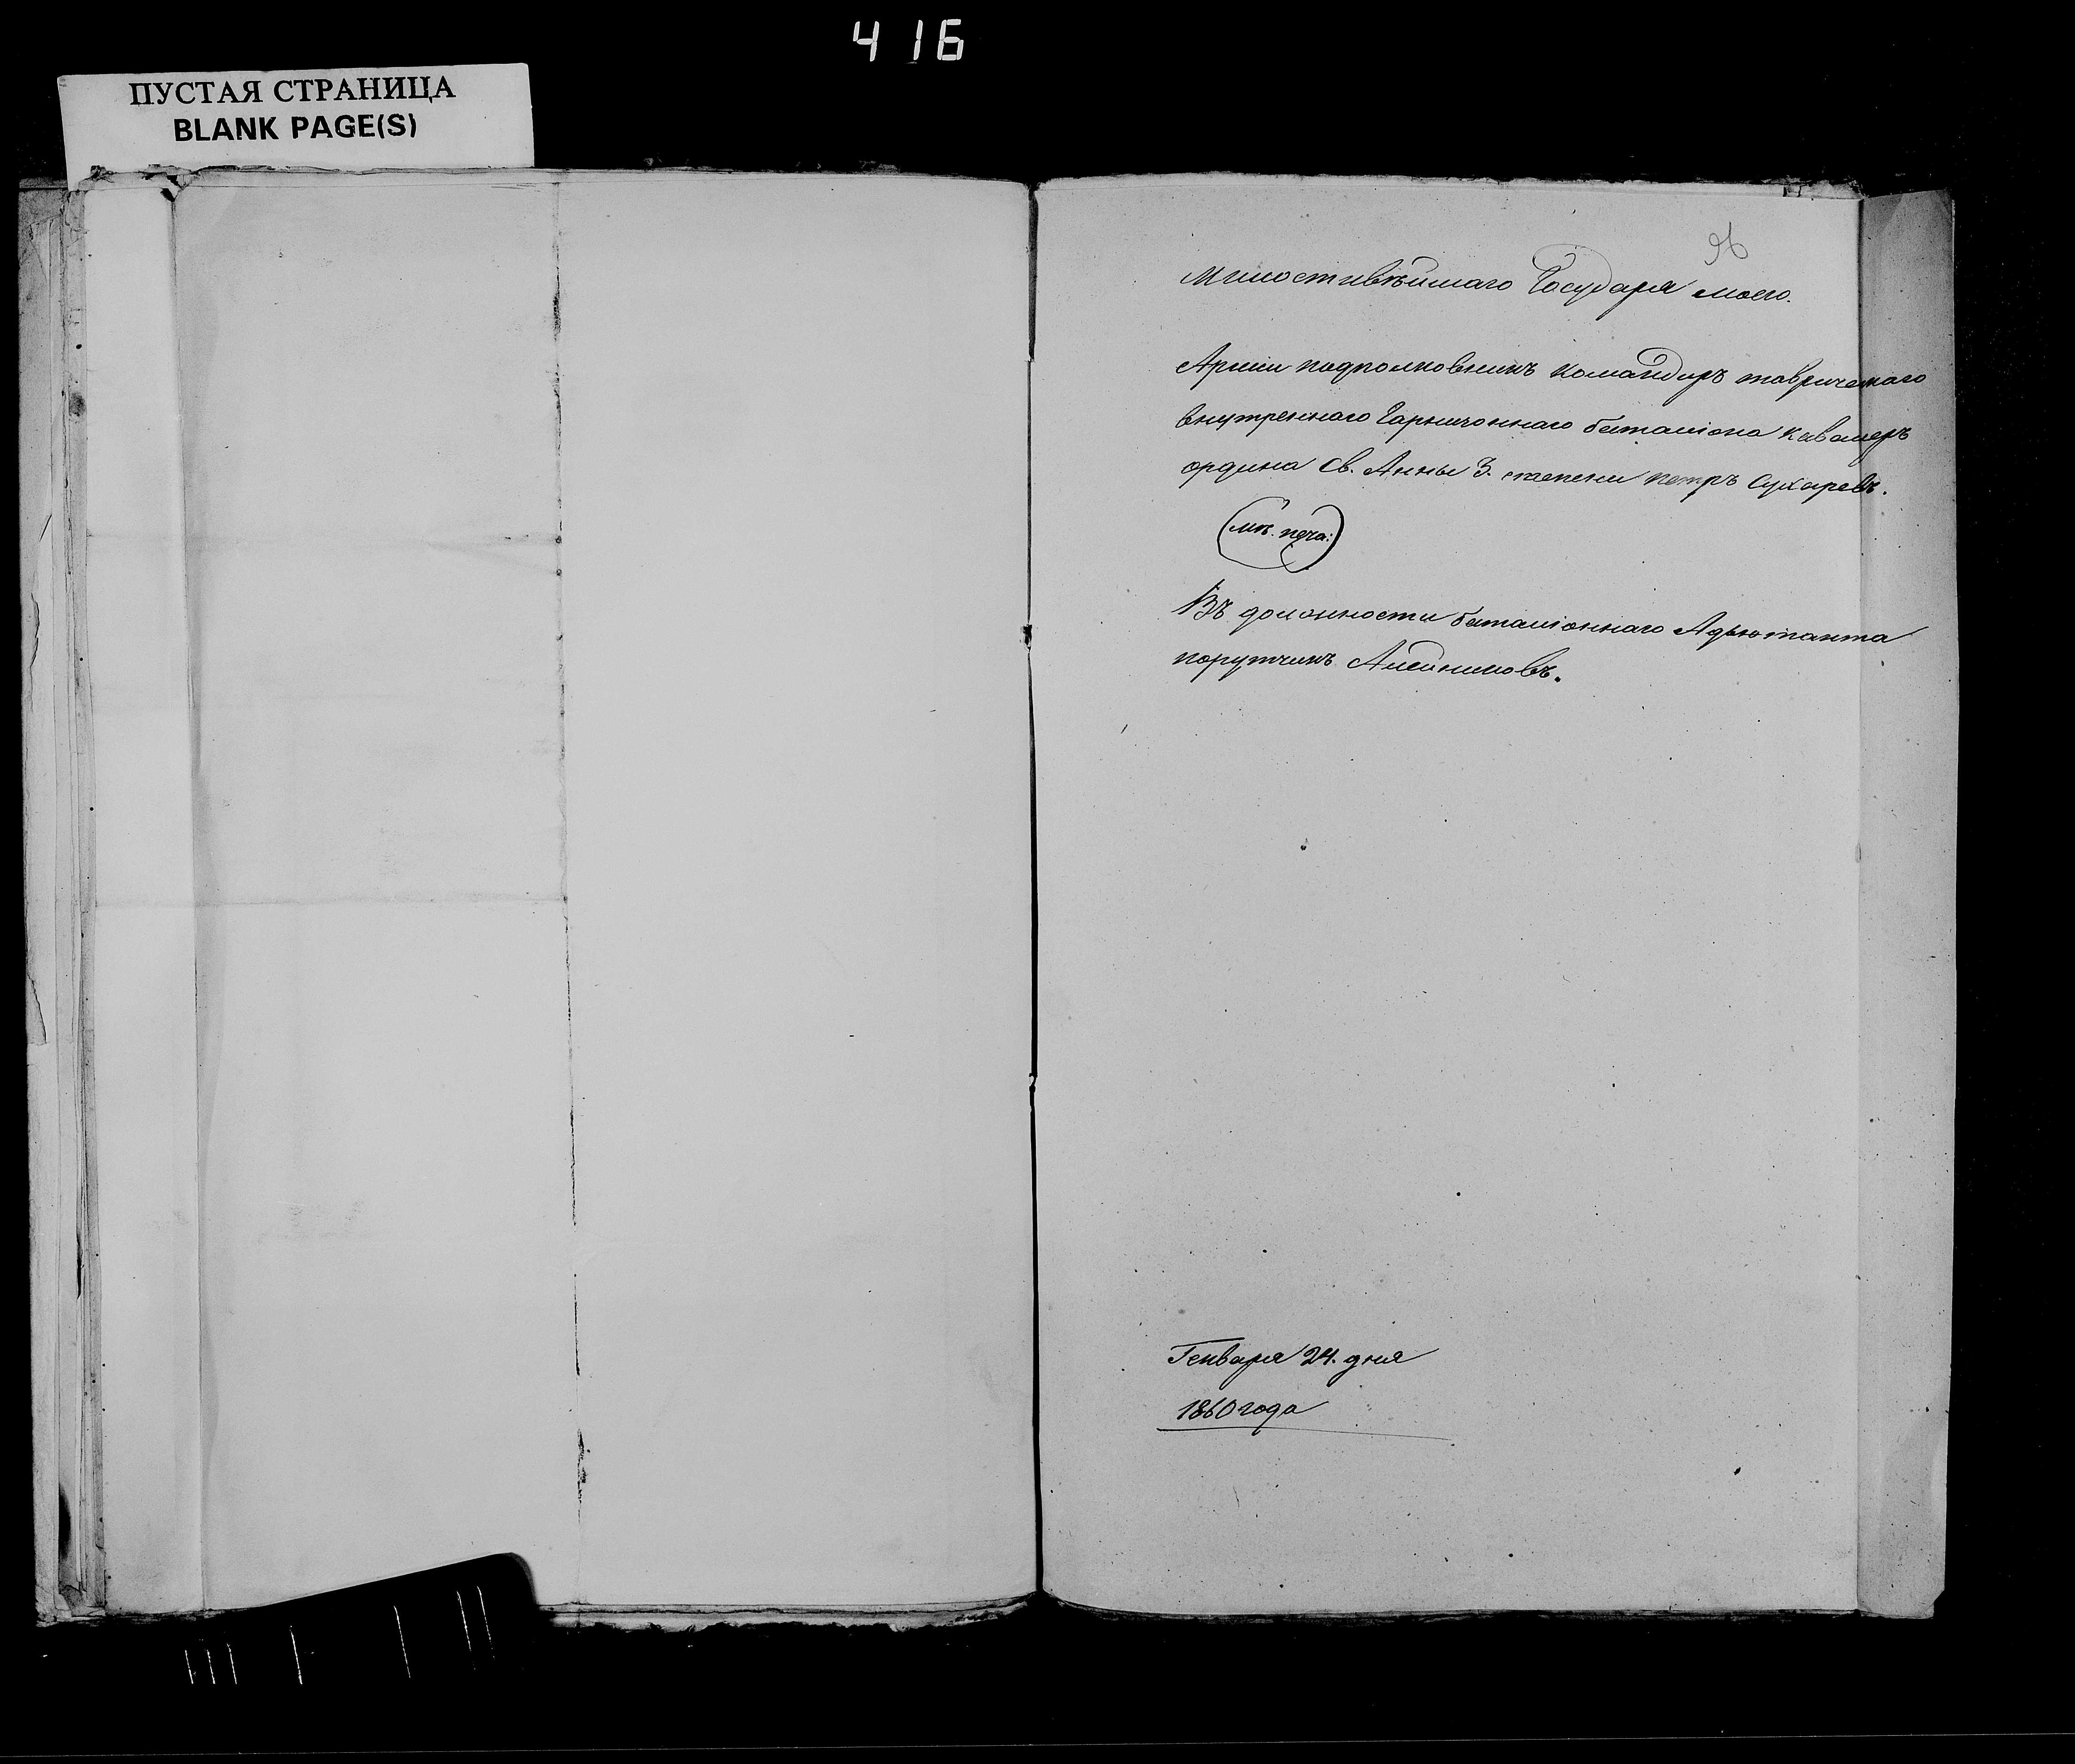 416
ПУСТАЯ СТРАНИЦА
BLANK PAGE(S)
96
Милостивѣйшаго Государя моего.
Армии подполковникъ командиръ таврическаго
внутреннаго Гарнизоннаго баталіона кавалеръ
ордина Св. Анны 3. степени петръ Сухаревъ.
(мѣ. печа:)
Въ должности баталіоннаго Адьютанта
порутчикъ Алейниковъ.
Генваря 24. дня
1860 года